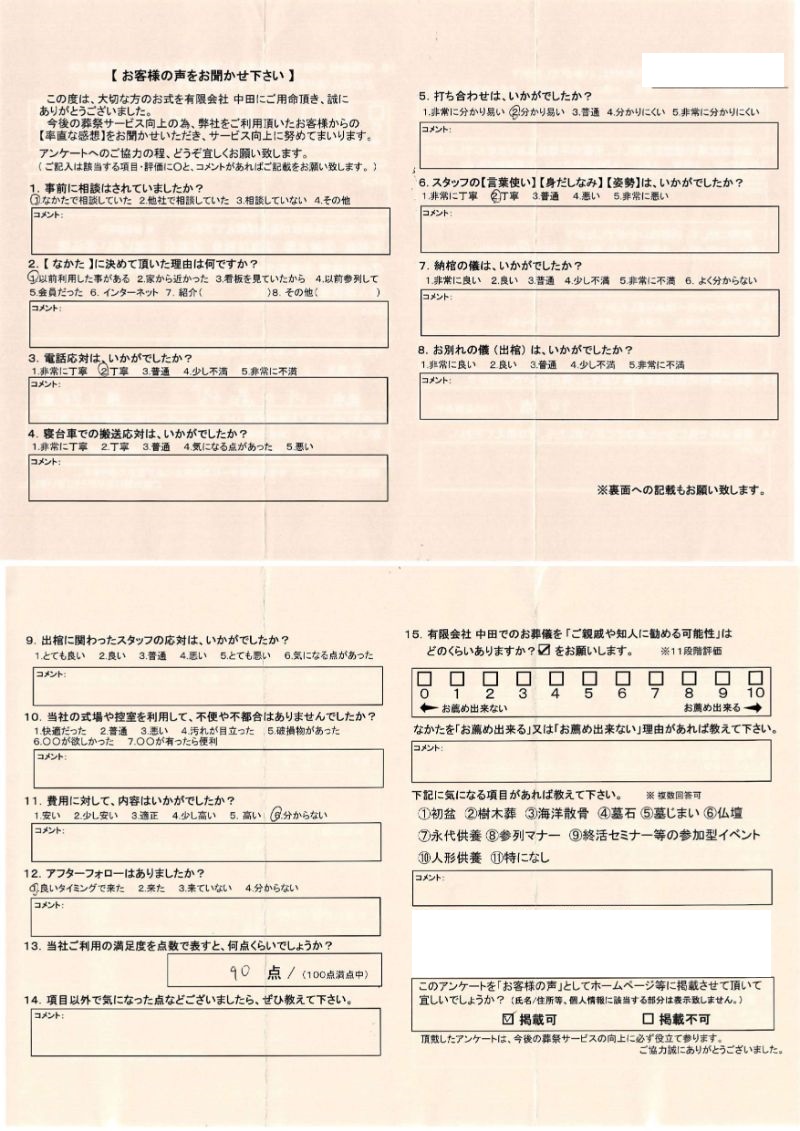 【 お客様の声をお聞かせ下さい 】
この度は、大切な方のお式を有限会社 中田にご用命頂き、誠に
ありがとうございました。
今後の葬祭サービス向上の為、弊社をご利用頂いたお客様からの
【率直な感想】をお聞かせいただき、サービス向上に努めてまいります。
アンケートへのご協力の程、どうぞ宜しくお願い致します。
(ご記入は該当する項目・評価に○と、コメントがあればご記載をお願い致します。)
1. 事前に相談はされていましたか？
①なかたで相談していた 2.他社で相談していた 3.相談していない 4.その他
コメント:
2.【 なかた 】に決めて頂いた理由は何ですか？
①以前利用した事がある 2.家から近かった 3.看板を見ていたから 4.以前参列して
5.会員だった 6. インターネット 7. 紹介( )8. その他( )
コメント:
3. 電話応対は、いかがでしたか？
1.非常に丁寧 ②丁寧 3.普通 4.少し不満 5.非常に不満
コメント:
4. 寝台車での搬送応対は、いかがでしたか？
1.非常に丁寧 2.丁寧 3.普通 4.気になる点があった 5.悪い
コメント:
5. 打ち合わせは、いかがでしたか？
1.非常に分かり易い ②分かり易い 3.普通 4.分かりにくい 5.非常に分かりにくい
コメント:
6. スタッフの【言葉使い】【身だしなみ】【姿勢】は、いかがでしたか？
1.非常に丁寧 ②丁寧 3.普通 4.悪い 5.非常に悪い
コメント:
7. 納棺の儀は、いかがでしたか？
1.非常に良い 2.良い 3.普通 4.少し不満 5.非常に不満 6. よく分からない
コメント:
8. お別れの儀（出棺）は、いかがでしたか？
1.非常に良い 2.良い 3.普通 4.少し不満 5.非常に不満
コメント:
※裏面への記載もお願い致します。
9. 出棺に関わったスタッフの応対は、いかがでしたか？
1.とても良い 2.良い 3.普通 4.悪い 5.とても悪い 6.気になる点があった
コメント:
10. 当社の式場や控室を利用して、不便や不都合はありませんでしたか？
1.快適だった 2.普通 3.悪い 4.汚れが目立った 5.破損物があった
6.〇〇が欲しかった 7.〇〇が有ったら便利
コメント:
11. 費用に対して、内容はいかがでしたか？
1.安い 2.少し安い 3.適正 4.少し高い 5. 高い ⑥分からない
コメント:
12. アフターフォローはありましたか？
①良いタイミングで来た 2.来た 3.来ていない 4.分からない
コメント:
13. 当社ご利用の満足度を点数で表すと、何点くらいでしょうか？
90 点 / (100点満点中)
14. 項目以外で気になった点などございましたら、ぜひ教えて下さい。
コメント:
15. 有限会社 中田でのお葬儀を「ご親戚や知人に勧める可能性」は
どのくらいありますか？☑をお願いします。 ※11段階評価
□ □ □ □ □ □ □ □ □ □ □
0 1 2 3 4 5 6 7 8 9 10
← お薦め出来ない お薦め出来る →
なかたを「お薦め出来る」又は「お薦め出来ない」理由があれば教えて下さい。
コメント:
下記に気になる項目があれば教えて下さい。 ※ 複数回答可
①初盆 ②樹木葬 ③海洋散骨 ④墓石 ⑤墓じまい ⑥仏壇
⑦永代供養 ⑧参列マナー ⑨終活セミナー等の参加型イベント
⑩人形供養 ⑪特になし
コメント:
このアンケートを「お客様の声」としてホームページ等に掲載させて頂いて
宜しいでしょうか？（氏名/住所等、個人情報に該当する部分は表示致しません。）
☑ 掲載可 □ 掲載不可
頂戴したアンケートは、今後の葬祭サービスの向上に必ず役立て参ります。
ご協力誠にありがとうございました。